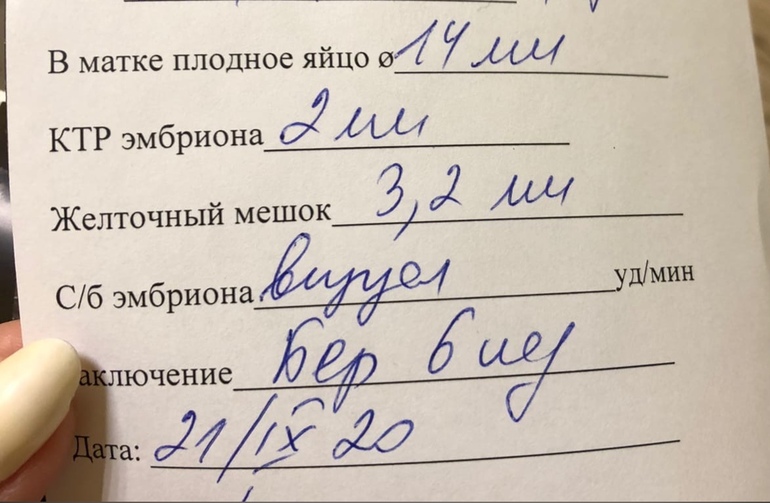 В матке плодное яйцо ø 14 мм
КТР эмбриона 2 мм
Желточный мешок 3,2 мм
С/б эмбриона визуал уд/мин
аключение Бер 6 нед
Дата: 21/IX 20